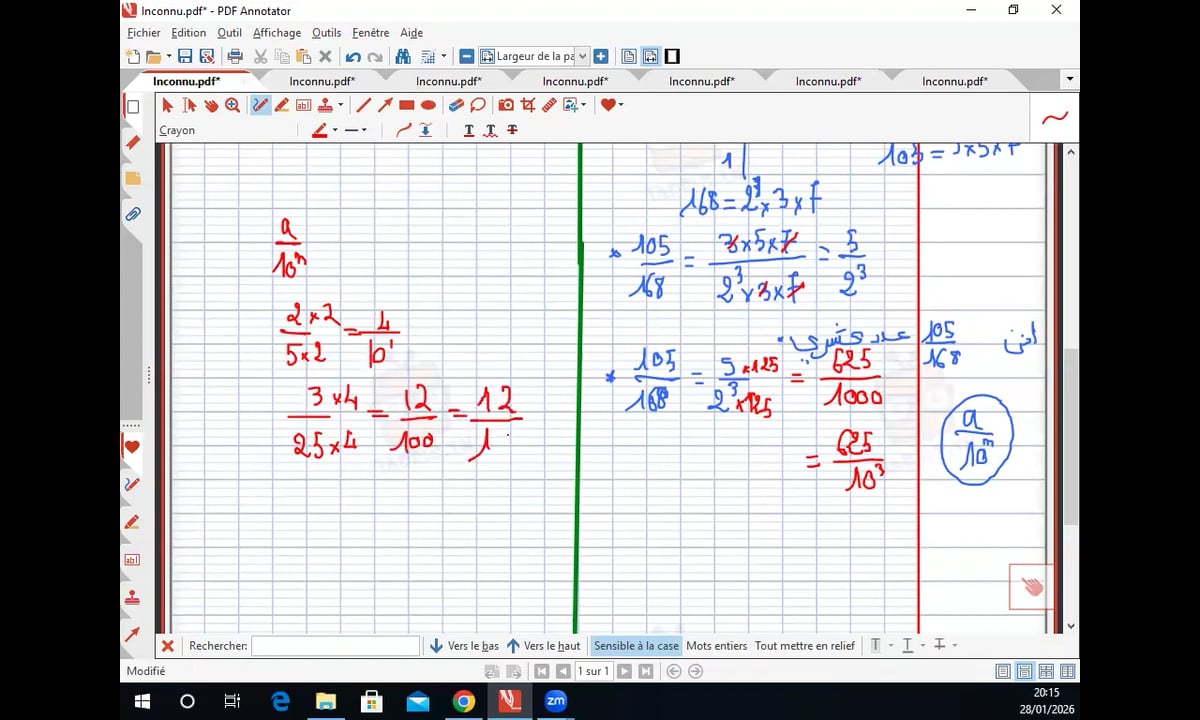 Inconnu.pdf* - PDF Annotator
Fichier Edition Outil Affichage Outils Fenêtre Aide
Largeur de la pa
Inconnu.pdf* Inconnu.pdf* Inconnu.pdf* Inconnu.pdf* Inconnu.pdf* Inconnu.pdf* Inconnu.pdf*
Crayon
1
105 = 3x5x7
168 = 2³ x 3 x 7
a/10ⁿ
* 105/168 = 3x5x7/2³x3x7 = 5/2³
2x2/5x2 = 4/10¹
إذن 105/168 عدد عشري.
* 105/168 = 5x125/2³x125 = 625/1000
3x4/25x4 = 12/100 = 12/1
a/10ⁿ
= 625/10³
Rechercher: Vers le bas Vers le haut Sensible à la case Mots entiers Tout mettre en relief
Modifié 1 sur 1
zm
20:15
28/01/2026